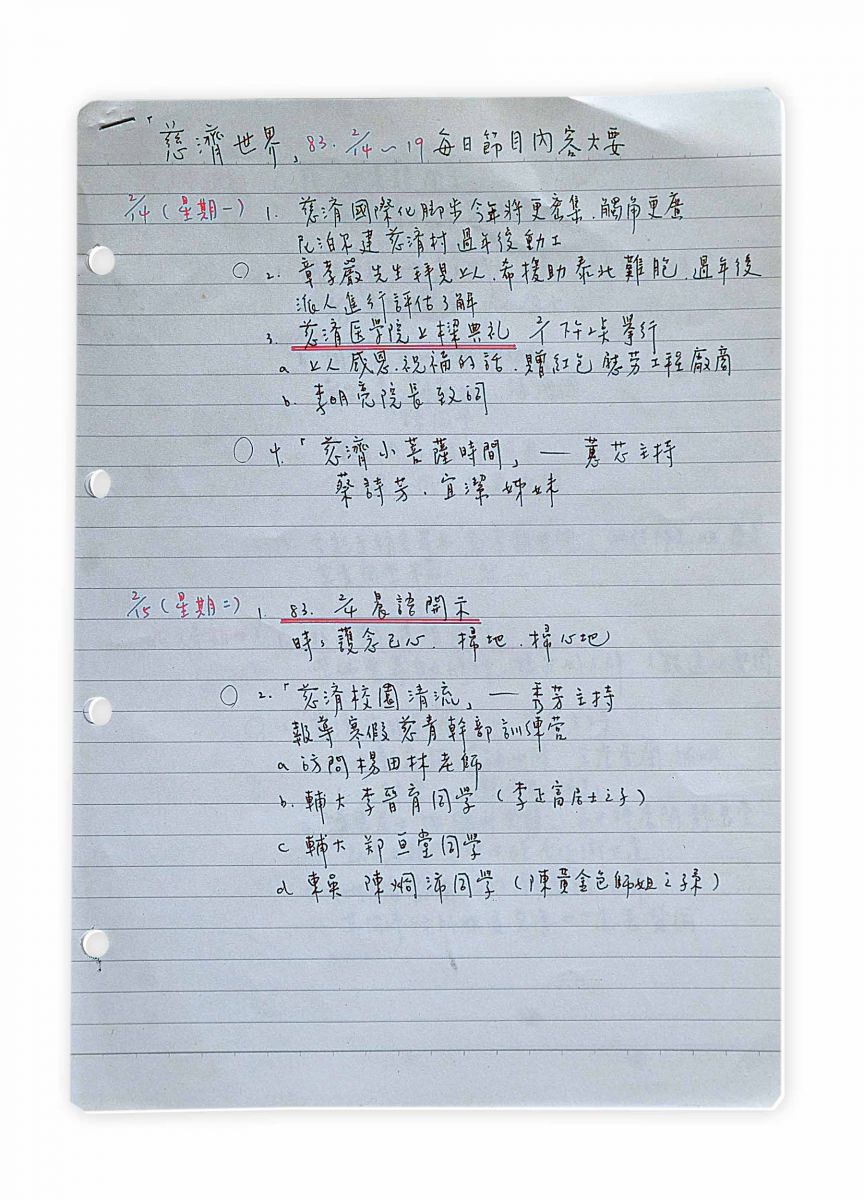 「慈濟世界」83. 2/14～19 每日節目內容大要
2/14 (星期一) 1. 慈濟國際化脚步今年將更密集、觸角更廣
尼泊尔建慈濟村過年後動工
○ 2. 章孝嚴先生拜見上人,希援助泰北難胞,過年後
派人進行評估了解
3. 慈濟医學院上樑典礼 下午2點舉行
a 上人感恩、祝福的話、贈紅包慰劳工程廠商
b. 李明亮院長致詞
○ 4.「慈濟小菩薩時間」— 蕙芯主持
蔡詩芳、宜潔姊妹
2/15 (星期二) 1. 83. 2/4 晨語開示
時時護念己心、掃地、掃心地
○ 2.「慈濟校園清流」— 秀芳主持
報導寒假慈青幹部訓練营
a 訪問楊田林老師
b. 輔大 李晉育同學 (李正富居士之子)
c 輔大 郑亘堂同學
d 東吳 陳炯沛同學 (陳黃金色師姐之孫)